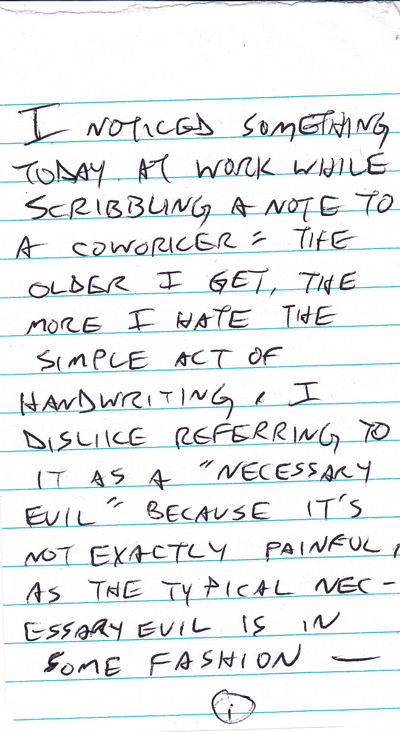 I NOTICED SOMETHING
TODAY AT WORK WHILE
SCRIBBLING A NOTE TO
A COWORKER = THE
OLDER I GET, THE
MORE I HATE THE
SIMPLE ACT OF
HANDWRITING, I
DISLIKE REFERRING TO
IT AS A "NECESSARY
EVIL" BECAUSE IT'S
NOT EXACTLY PAINFUL,
AS THE TYPICAL NEC-
ESSARY EVIL IS IN
SOME FASHION —
1